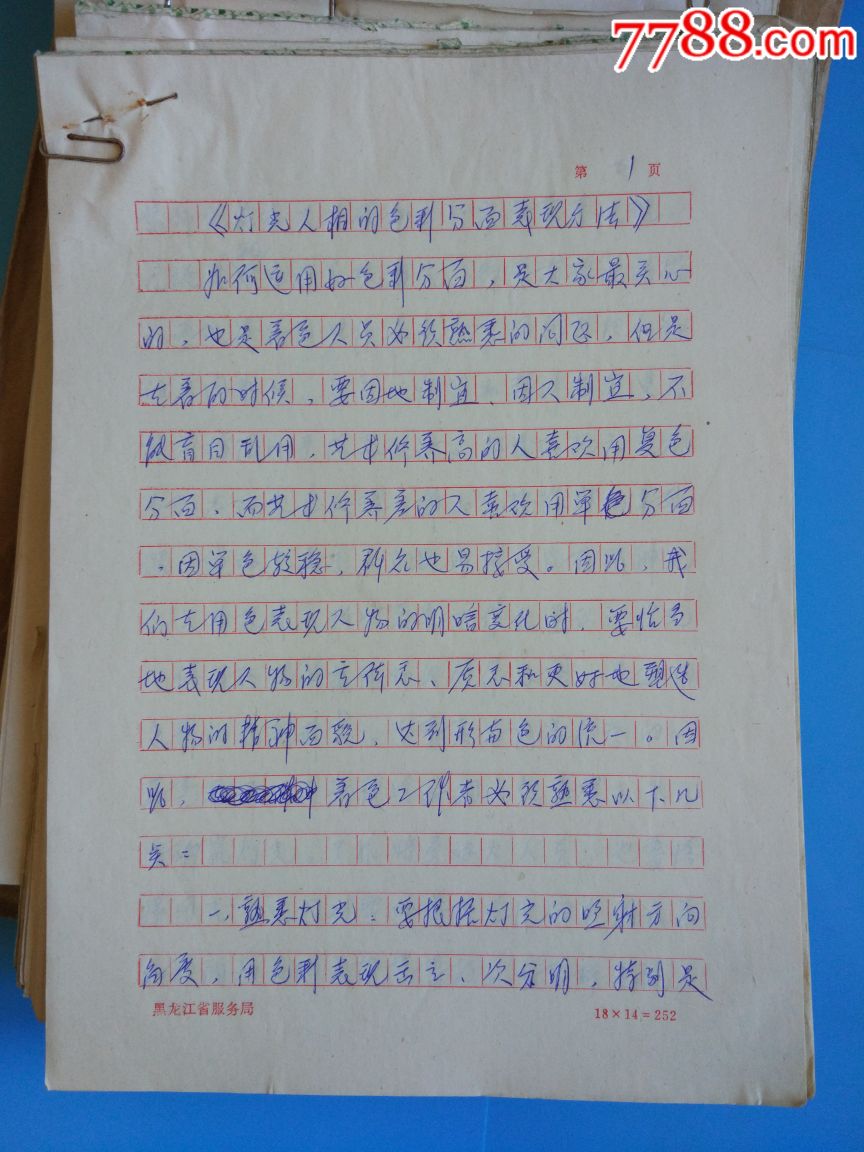 7788.com
第 1 页
《灯光人相的色彩分面表现方法》
如何运用好色彩分面，是大家最关心
的，也是着色人员必须熟悉的问题，但是
在着的时候，要因地制宜、因人制宜，不
能盲目乱用，艺术修养高的人喜欢用复色
分面，而艺术修养差的人喜欢用单色分面
，因单色较稳，群众也易接受。因此，我
们在用色表现人物的明暗变化时，要恰当
地表现人物的立体感、质感和更好地塑造
人物的精神面貌，达到形与色的统一。因
此，着色工作者必须熟悉以下几
点：
一、熟悉灯光：要根据灯光的照射方向
角度，用色彩表现出主、次分明，特别是
黑龙江省服务局
18×14=252